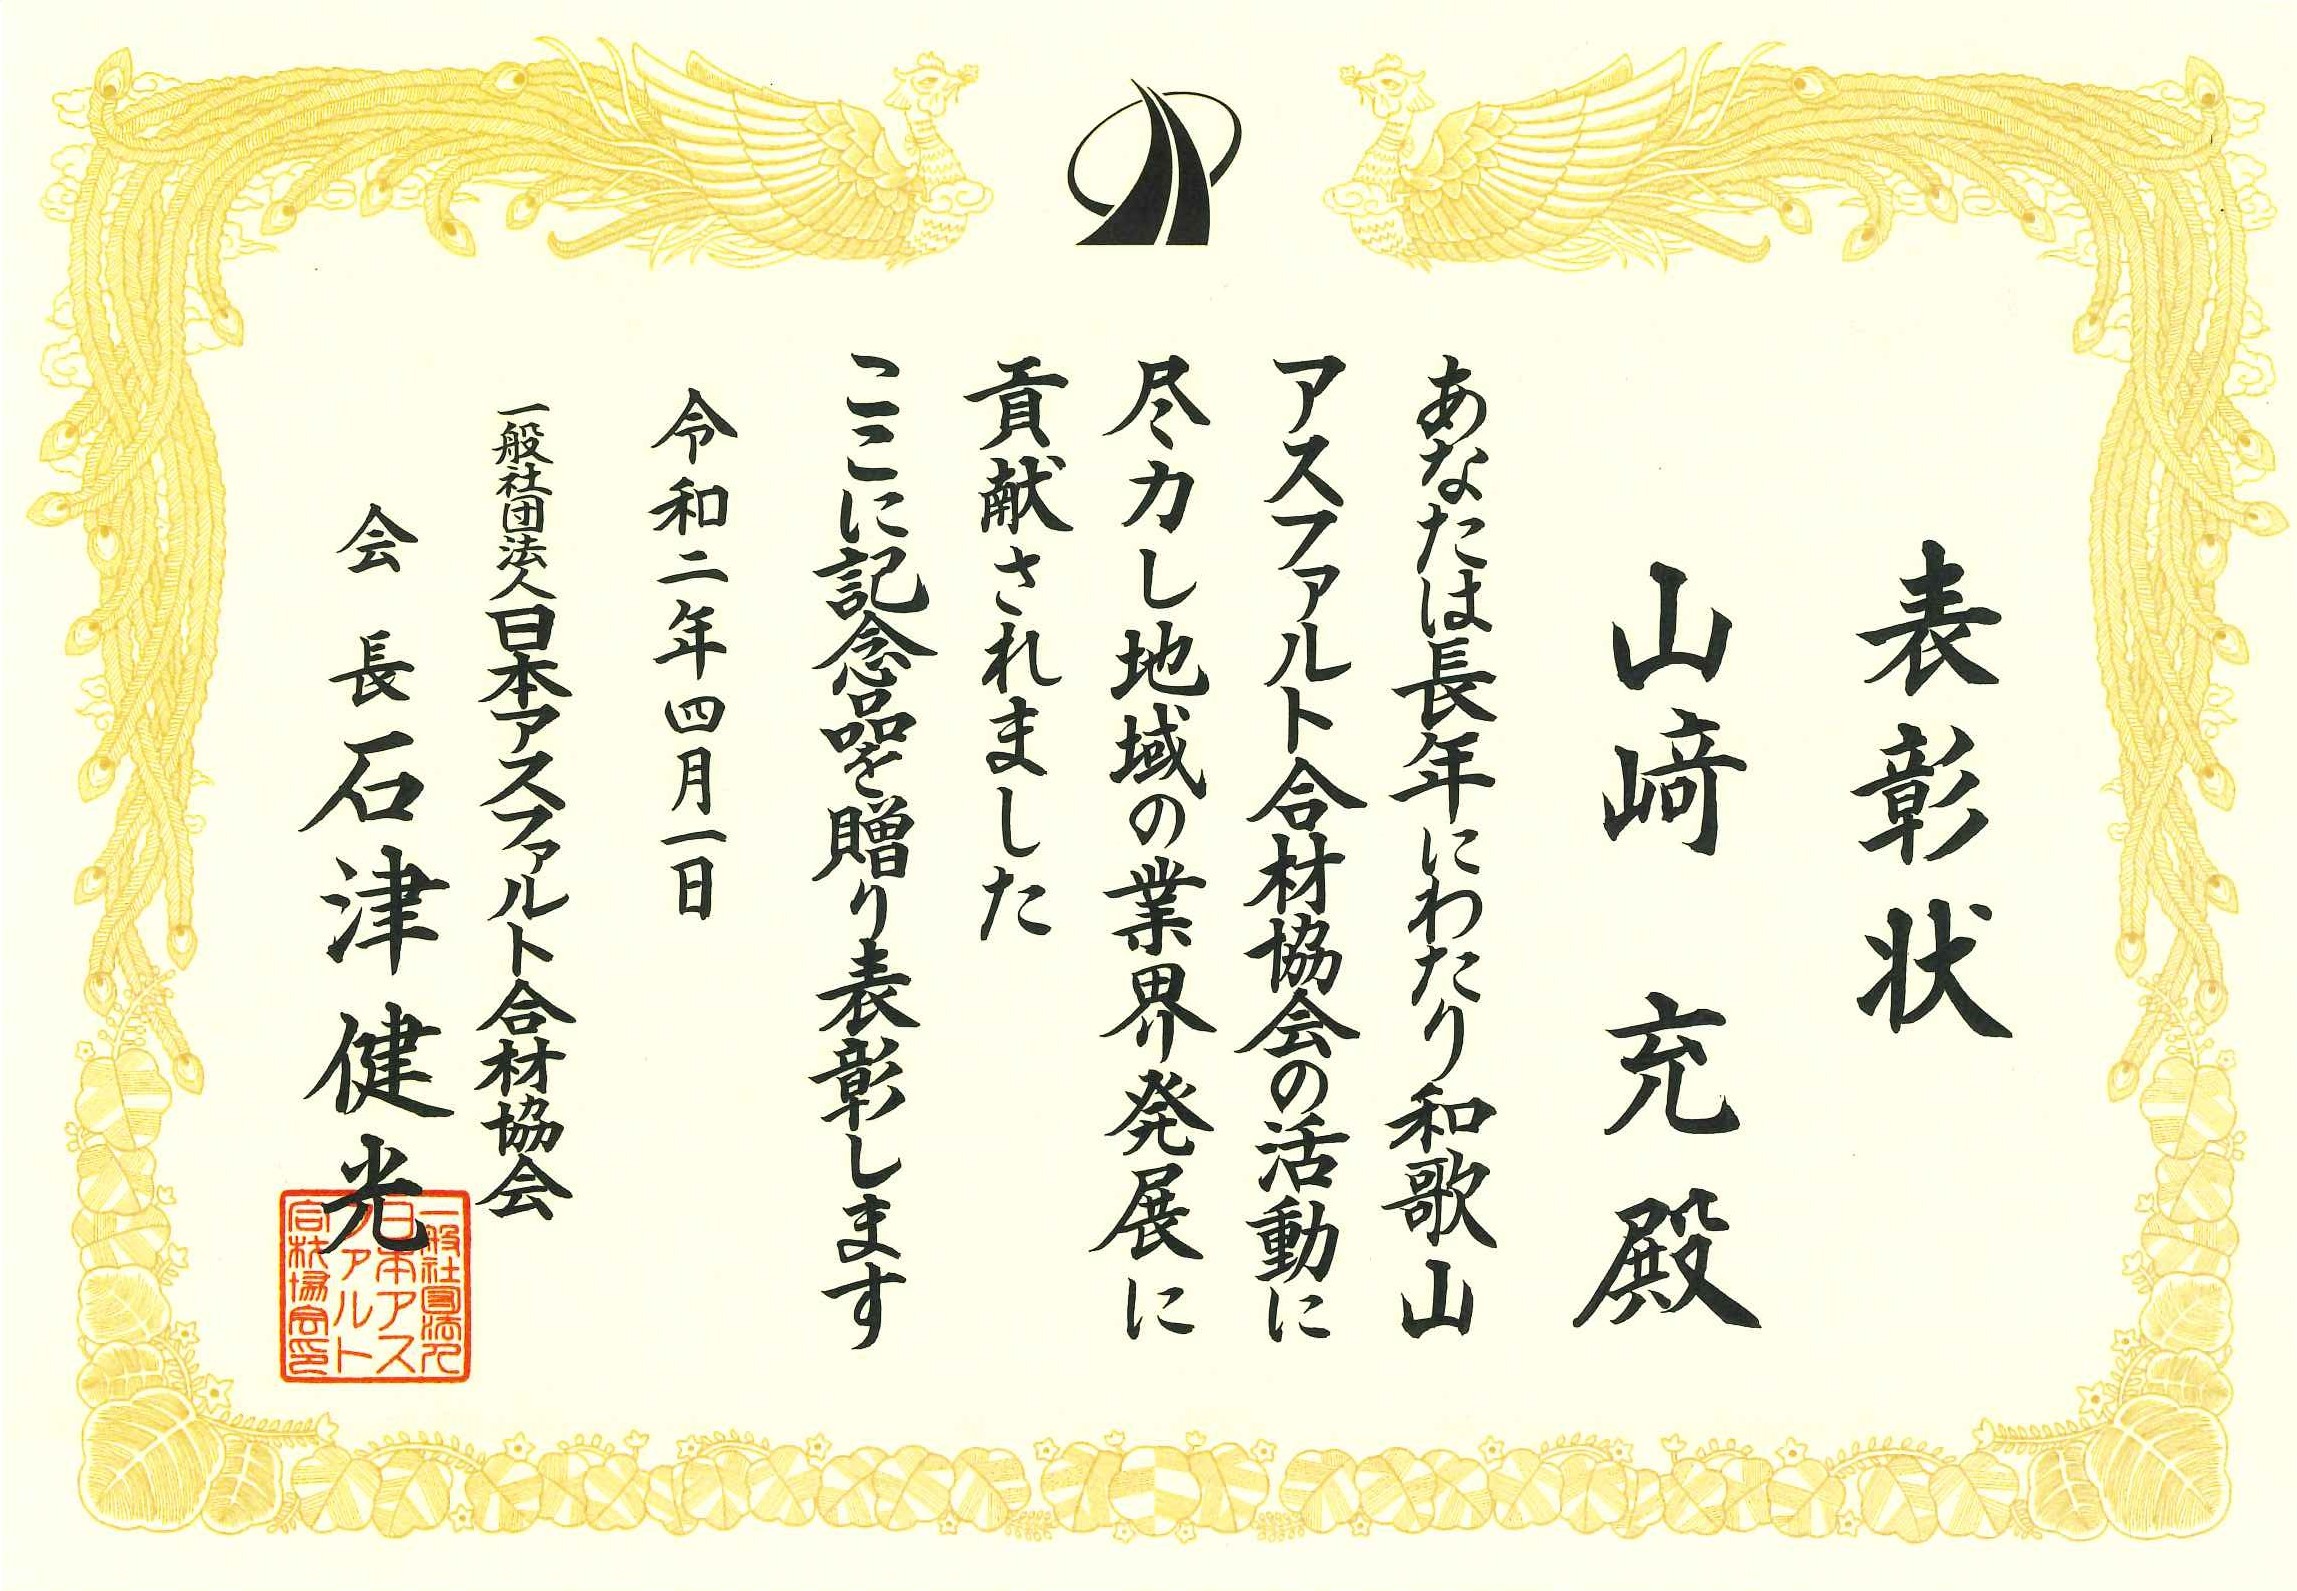 表彰状
山﨑 充 殿
あなたは長年にわたり和歌山
アスファルト合材協会の活動に
尽力し地域の業界発展に
貢献されました
ここに記念品を贈り表彰します
令和二年四月一日
一般社団法人日本アスファルト合材協会
会長 石津健光
一般社団法人
日本アス
ファルト
合材協会印